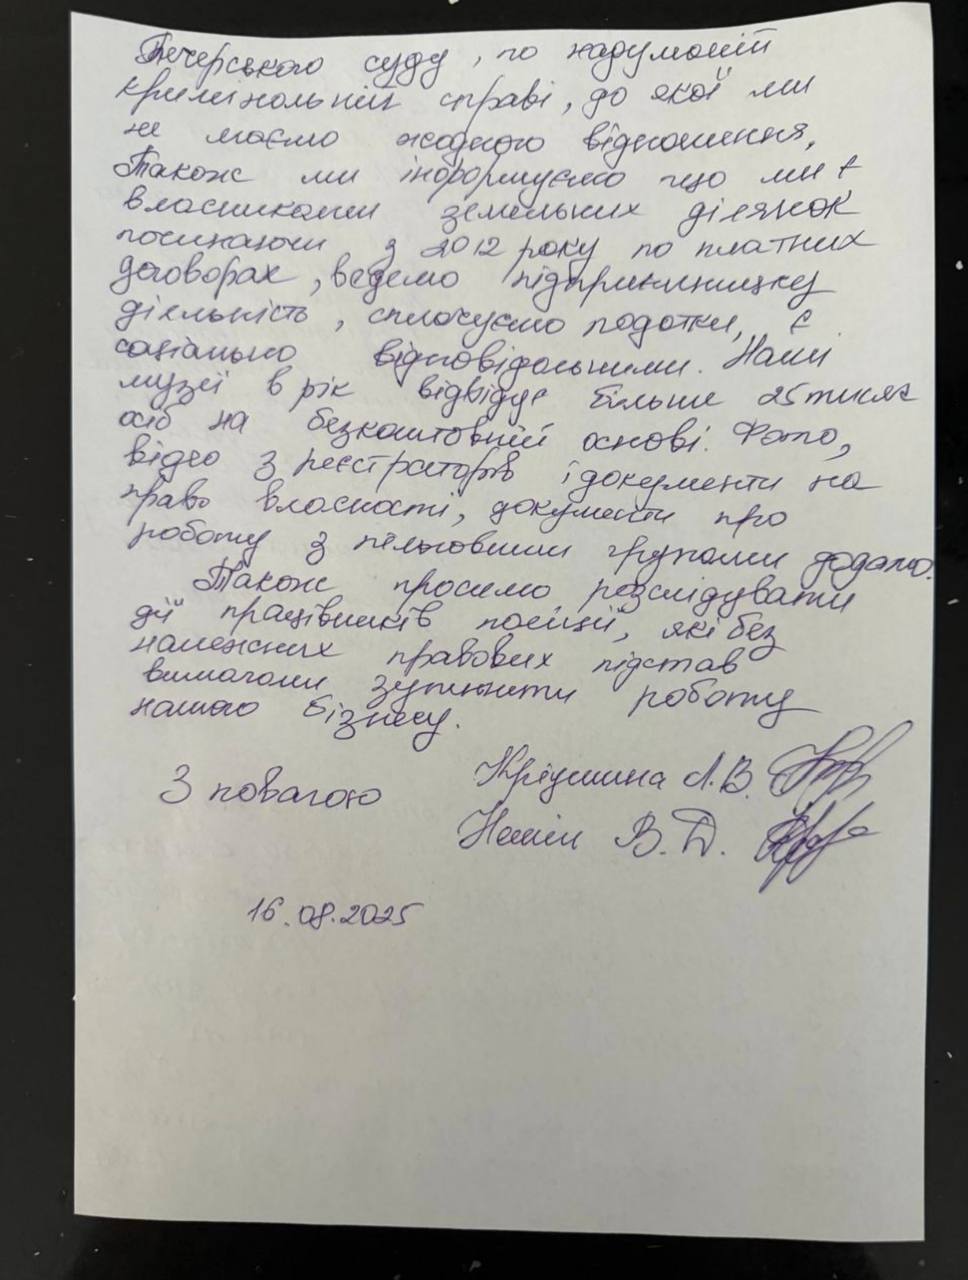 Печерського суду, по надуманій
кримінальній справі, до якої ми
не маємо жодного відношення.
Також ми інформуємо що ми є
власниками земельних ділянок
починаючи з 2012 року по платних
договорах, ведемо підприємницьку
діяльність, сплачуємо податки, є
соціально відповідальними. Наші
музеї в рік відвідує більше 25 тисяч
осіб на безкоштовній основі. Фото,
відео з реєстраторів і документи на
право власності, документи про
роботу з пільговими групами додаємо.
Також просимо розслідувати
дії працівників поліції, які без
належних правових підстав
вимагали зупинити роботу
нашого бізнесу.
З повагою
Кріушина Л.В.
В.Д.
16.08.2025